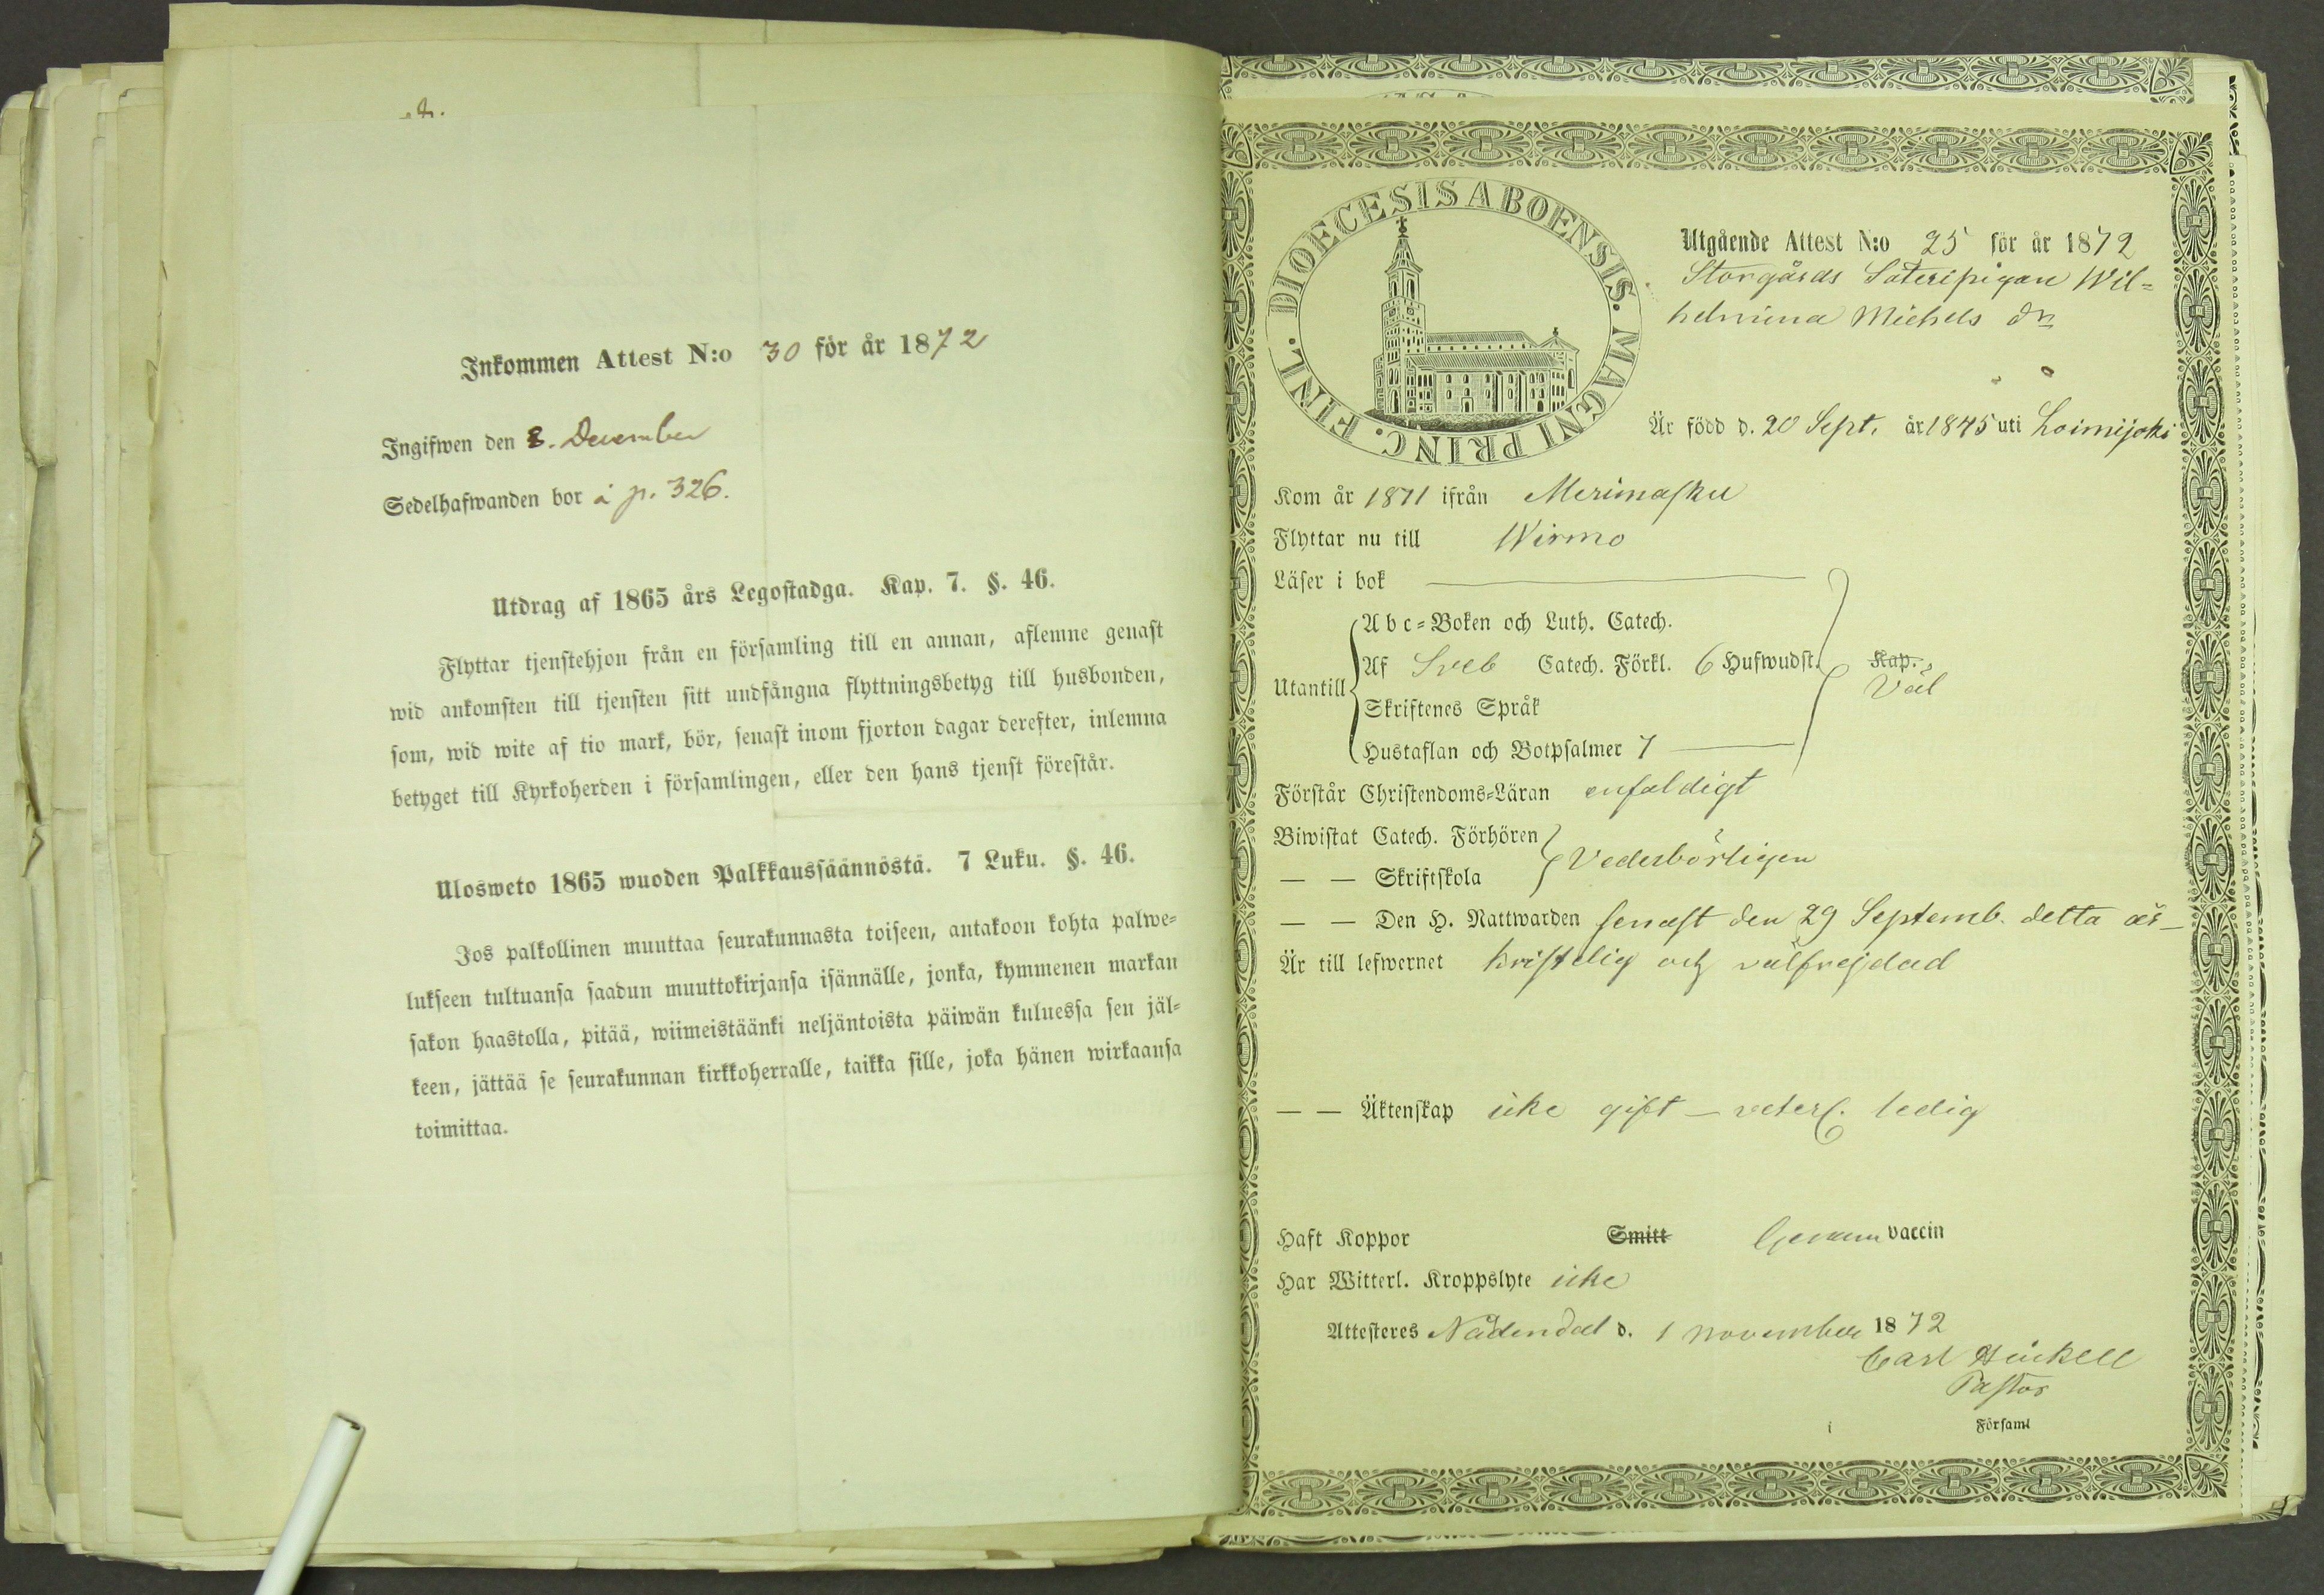 Inkommen Attest N:o 30 för år 1872
Ingifwen den 8. December
Sedelhafwanden bor å p. 326.
Utdrag af 1865 års Legostadga. Kap. 7. §. 46.
Flyttar tjenstehjon från en församling till en annan, aflemne genast
wid ankomsten till tjensten sitt undfångna flyttningsbetyg till husbonden,
som, wid wite af tio mark, bör, senast inom fjorton dagar derefter, inlemna
betyget till Kyrkoherden i församlingen, eller den hans tjenst förestår.
Ulosweto 1865 wuoden Palkkaussäännöstä. 7 Luku. §. 46.
Jos palkollinen muuttaa seurakunnasta toiseen, antakoon kohta palwe=
lukseen tultuansa saadun muuttokirjansa isännälle, jonka, kymmenen markan
sakon haastolla, pitää, wiimeistäänki neljäntoista päiwän kuluessa sen jäl=
keen, jättää se seurakunnan kirkkoherralle, taikka sille, joka hänen wirkaansa
toimittaa.
DIOECESIS ABOENSIS. MAGNI PRINC. FINL.
Utgående Attest N:o 25 för år 1872
Storgårds Säteripigan Wil=
helmina Michels dr
Är född d. 20 Sept. år 1845 uti Loimijoki
Kom år 1871 ifrån Merimasku
Flyttar nu till Wirmo
Läser i bok
Abc=Boken och Luth. Catech.
Utantill Af Sveb Catech. Förkl. 6 Hufwudst. Kap.
Väl
Skriftenes Språk
Hustaflan och Botpsalmer 7
Förstår Christendoms=Läran enfaldigt
Biwistat Catech. Förhören
— — Skriftskola Vederbörligen
— — Den H. Nattwarden senast den 29 Septemb. detta år
Är till lefwernet kristelig och välfrejdad
— — Äktenskap icke gift – veterl. ledig
Haft Koppor Smitt Genom vaccin
Har Witterl. Kroppslyte icke
Attesteres Nådendal d. 1 november 1872
Carl Heickell
Pastor
i Församl